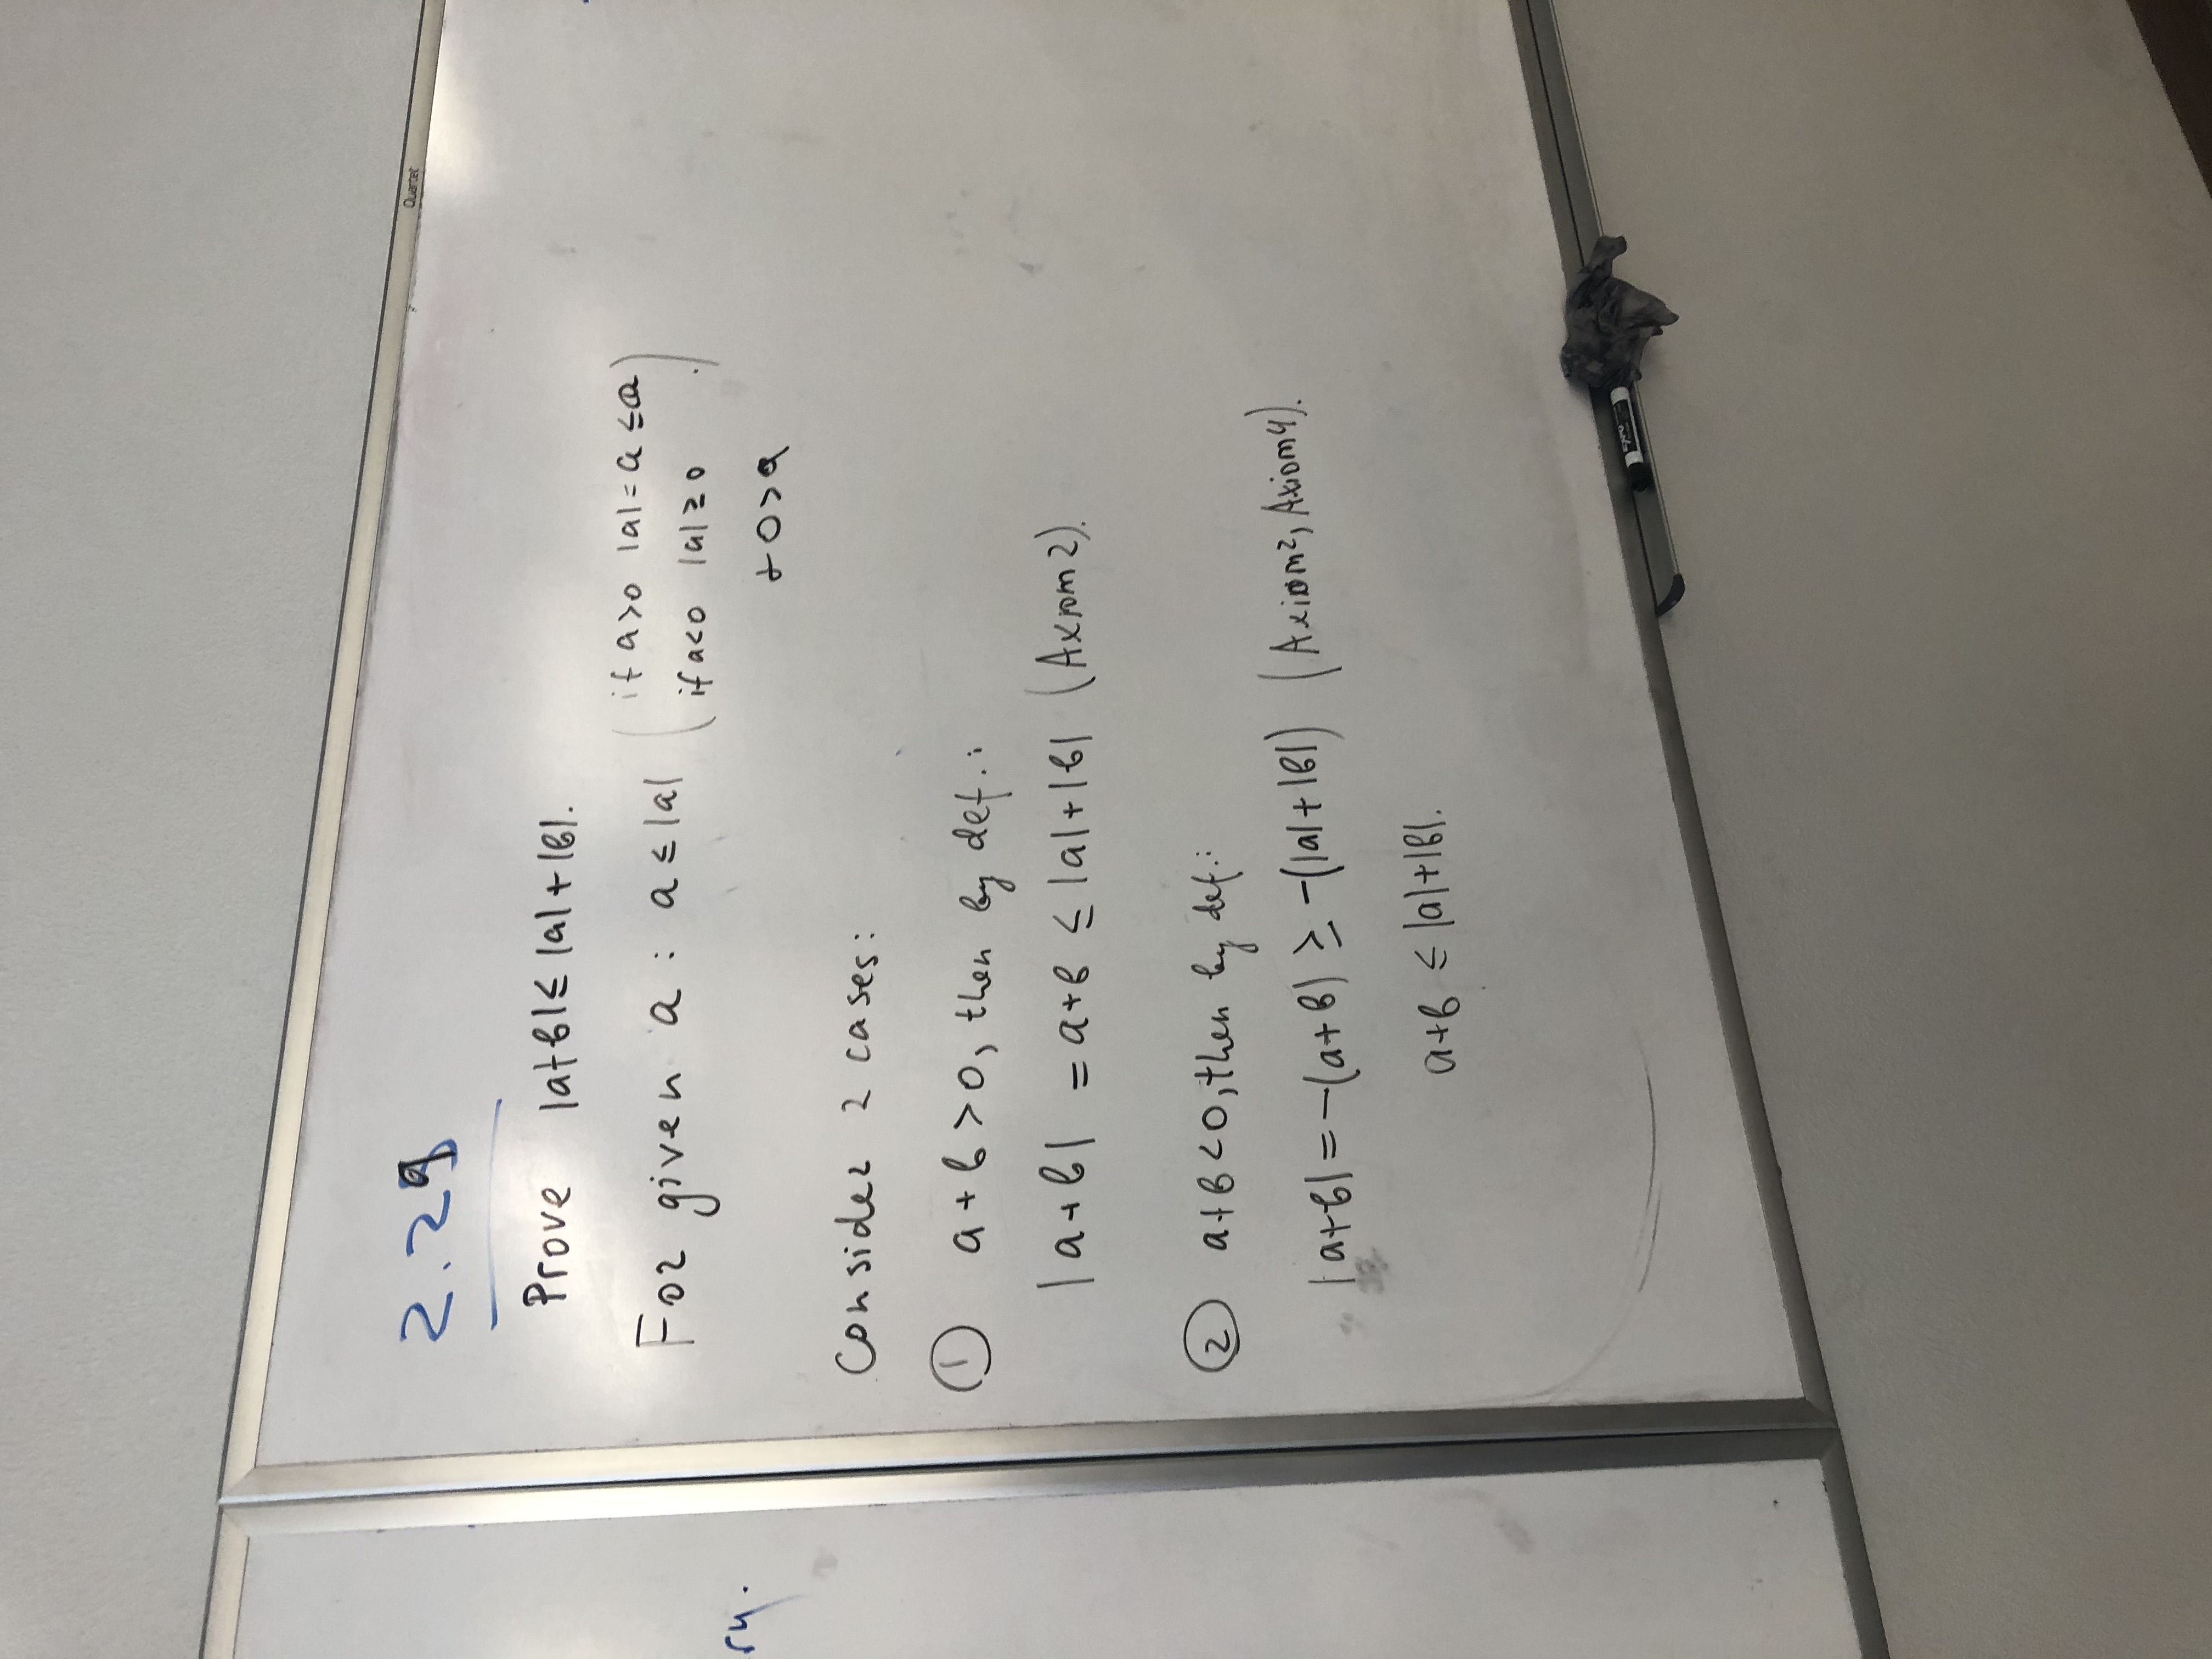 Quartet
2.29
Prove |a+b|≤|a|+|b|.
For given a : a≤|a| ( if a>0 |a|=a≤a
if a<0 |a|≥0 . )
+ 0>a
ry.
Consider 2 cases:
① a+b>0, then by def.:
|a+b| = a+b ≤ |a|+|b| (Axiom 2).
② a+b<0, then by def.:
|a+b| = -(a+b) ≥ -(|a|+|b|) (Axiom 2, Axiom 4).
a+b ≤ |a|+|b|.
EXPO